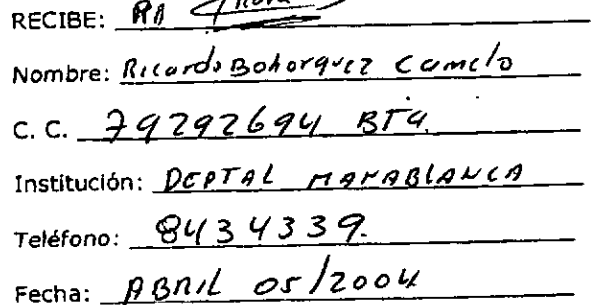 RECIBE:
Nombre: Ricardo Bohorquez Camelo
C. C. 79292694 BTA.
Institución: DEPTAL MANABLANCA
Teléfono: 8434339.
Fecha: ABRIL 05/2004